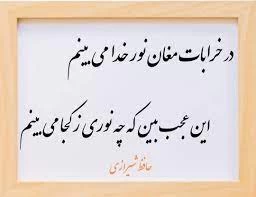 در خرابات مغان نور خدا می بینم
این عجب بین که چه نوری ز کجا می بینم
حافظ شیرازی